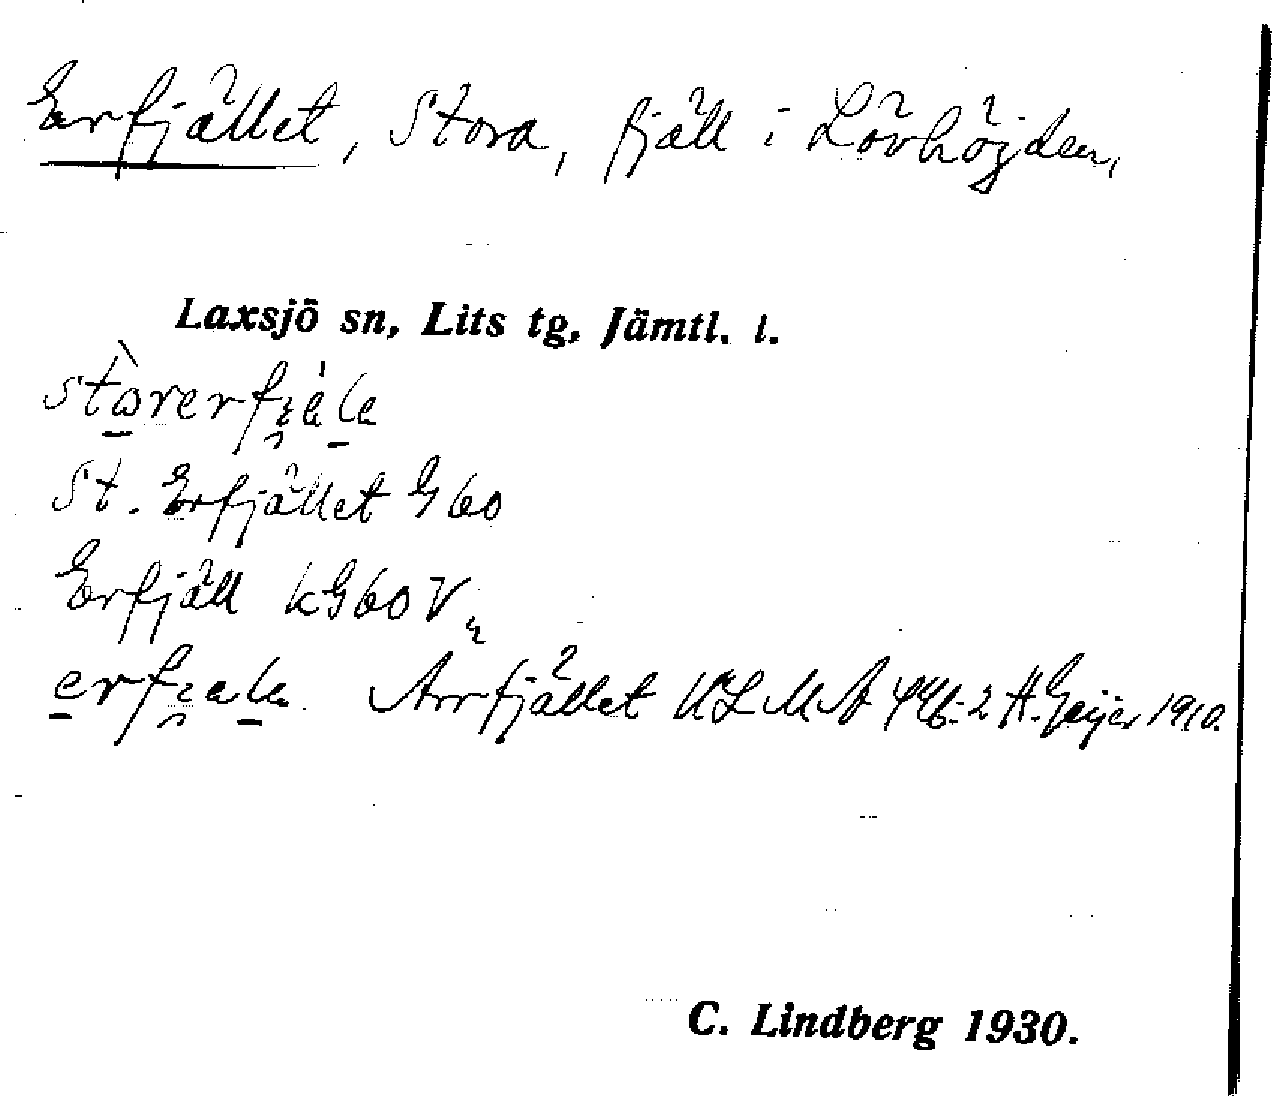 Erfjället, Stora, fjäll i Lövhöjden,
Laxsjö sn, Lits tg, Jämtl. l.
St. Erfjället G 60
Erfjäll kG60V
Arrfjället KLMA H. Geijer 1910.
C. Lindberg 1930.